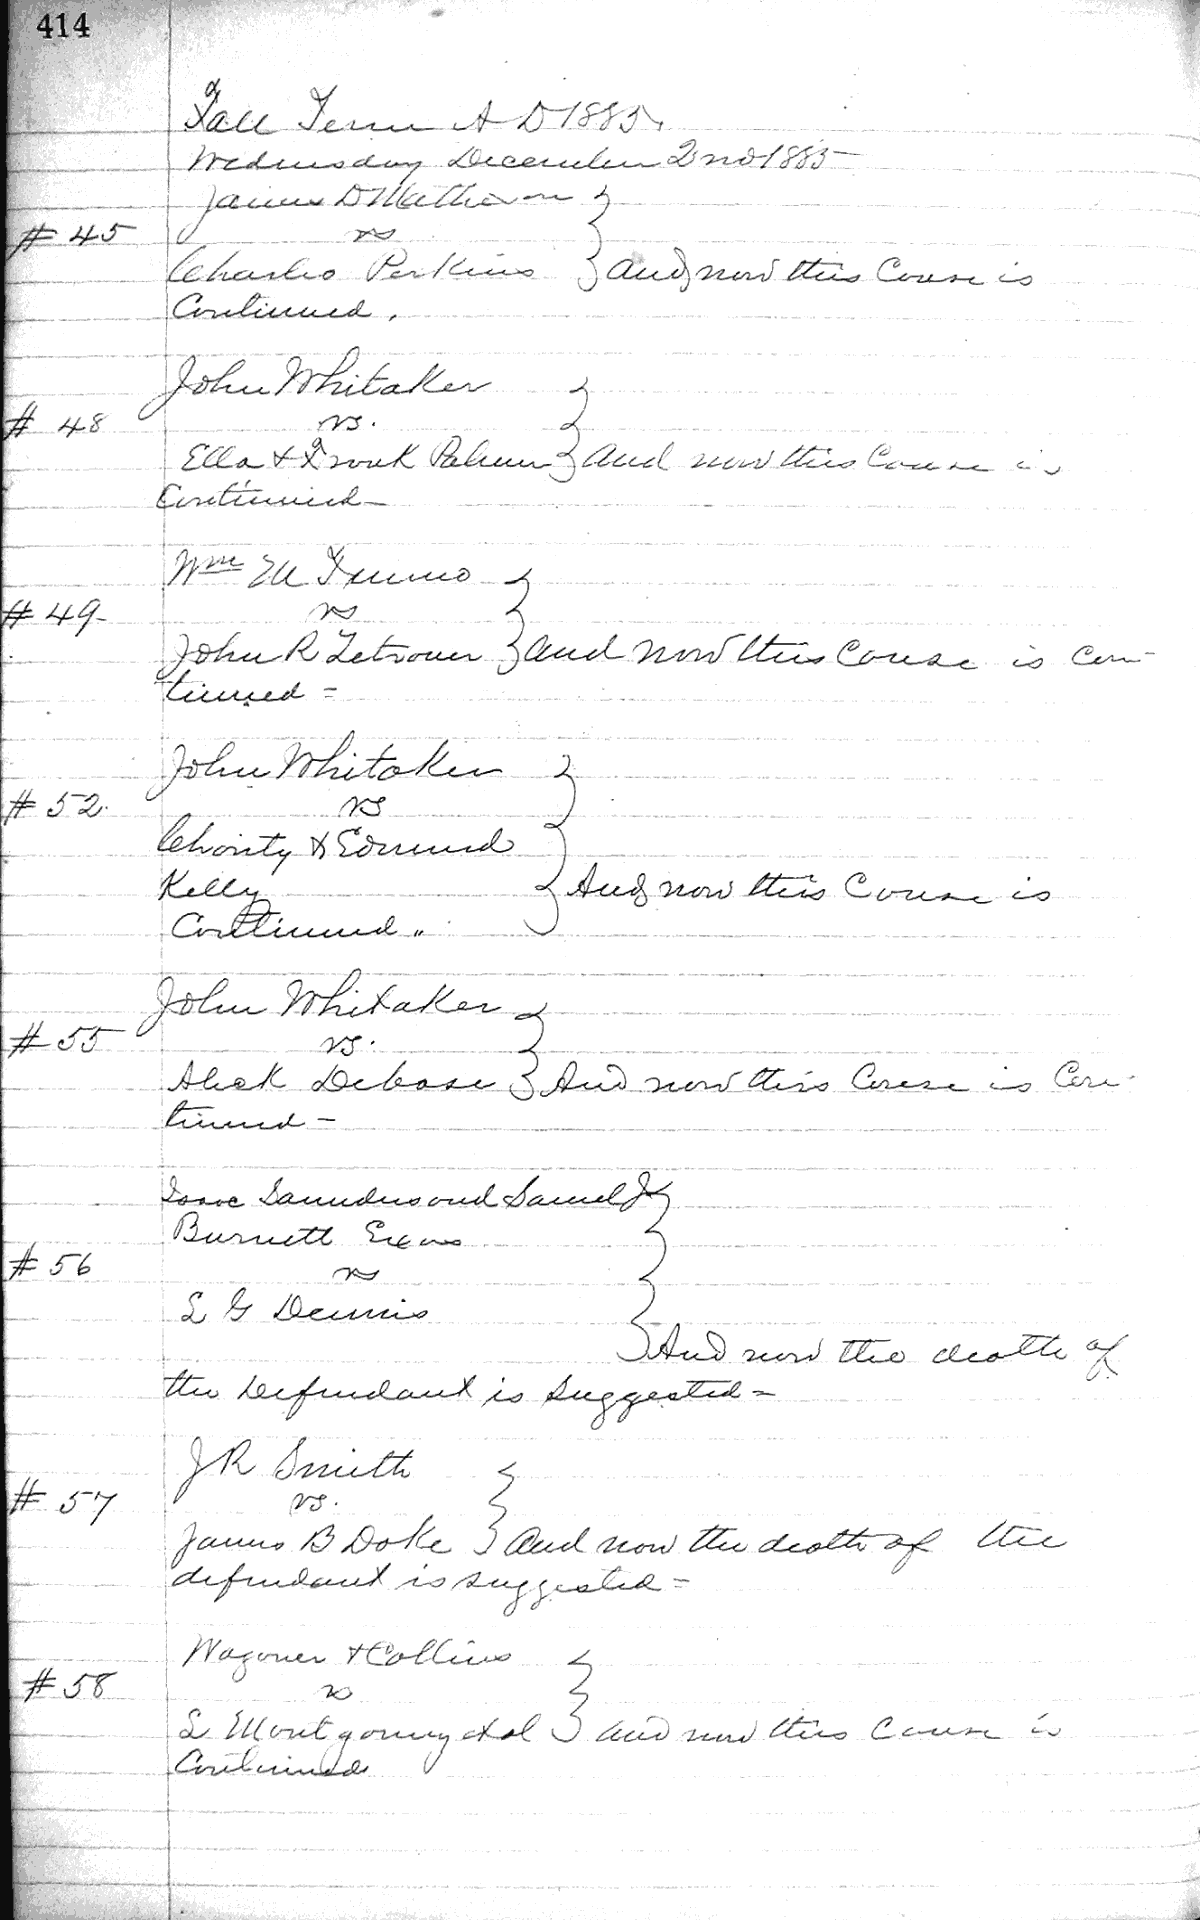 414
Fall Term A D 1885,
Wednesday December 2nd 1885
James D Matheson
# 45 vs
Charles Perkins } and now this Cause is
Continued.
John Whitaker
# 48 vs.
Ella & Frank Palmer } and now this Cause is
Continued
Wm M
# 49 vs
John R Tetrouer } and now this Cause is Con-
tinued
John Whitaker
# 52. vs
Charity & Edmund
Kelly } And now this Cause is
Continued "
John Whitaker
# 55 vs.
Aleck Debose } And now this Cause is Con-
tinued -
Isaac Saunders and Samuel J
Burnett Exors
# 56 vs
L G Dennis
} And now the death of
the Defendant is suggested =
J R Smith
# 57 vs.
James B Doke } and now the death of the
defendant is suggested =
Wagoner & Collins
# 58 vs
L Montgomery et al } and now this Cause is
Continued